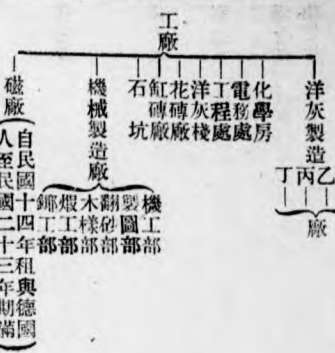 工廠
洋灰廠
乙
丙
丁
化學房
電務處
工程處
洋灰棧
花磚廠
缸磚廠
石坑
機械製造廠
機工部
製圖部
翻砂部
木樣部
煆工部
鉚工部
磁廠
自民國十四年租與德國
人至民國二十三年期滿